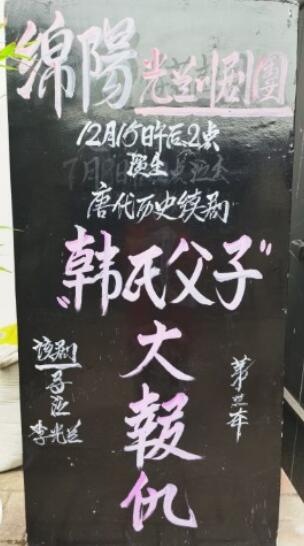 绵陽光兰川剧團
12月15日午后2点
演出
唐代历史续剧
"韩氏父子"
大報仇
第三本
该剧
导演
李光兰